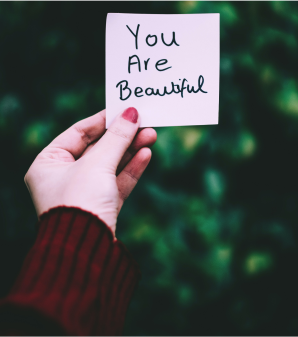 You
Are
Beautiful